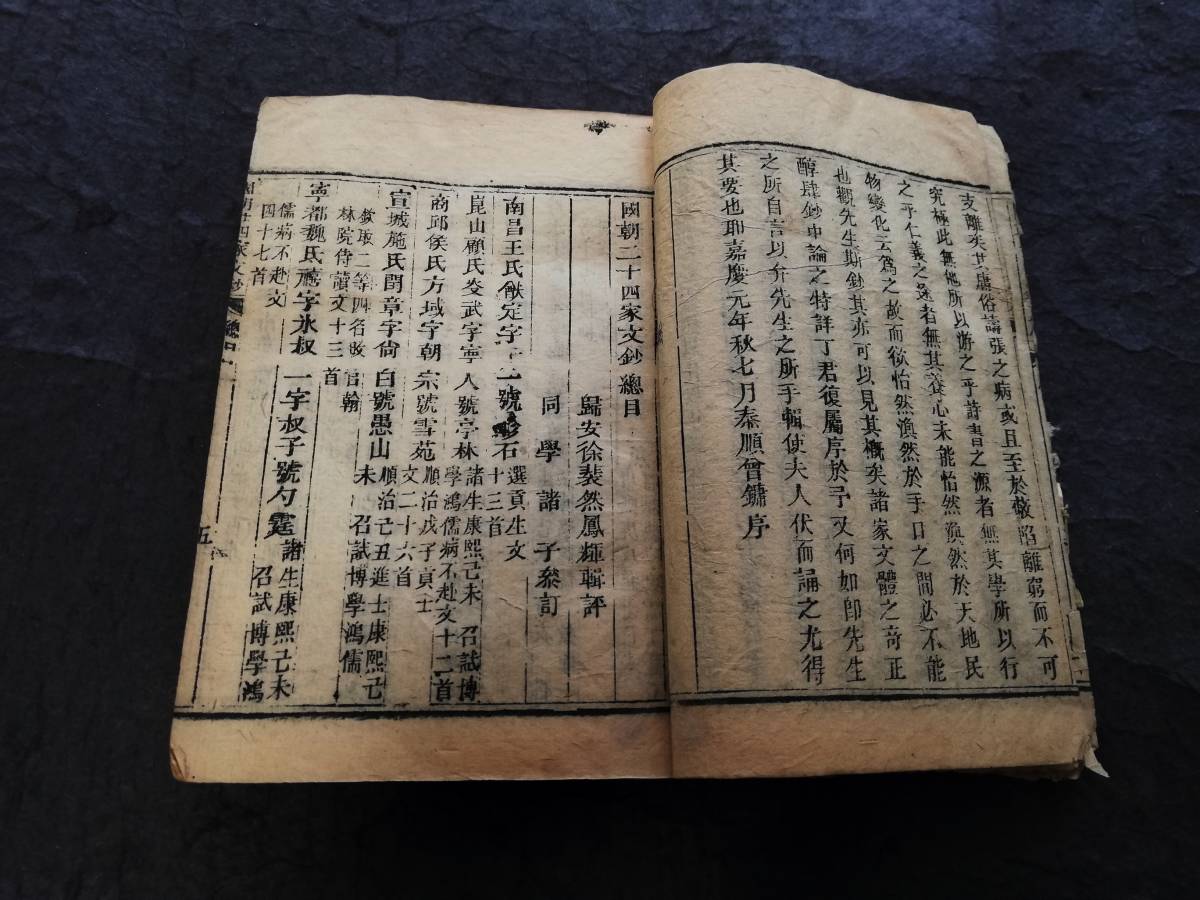 支離矣其庸俗譸張之病或且至於敬陷離窮而不可
究極此無他所以游之乎詩書之源者無其學所以行
之乎仁義之途者無其養心未能怡然渙然於天地民
物變化云爲之故而欲怡然渙然於手口之間必不能
也觀先生斯鈔其亦可以見其概矣諸家文體之奇正
醇肆鈔中論之特詳丁君復屬序於予又何如卽先生
之所自言以弁先生之所手輯使夫人伏而誦之尤得
其要也耶嘉慶元年秋七月泰順曾鏞序
國朝二十四家文鈔總目
歸安徐斐然鳳輝輯評
同學諸子叅訂
南昌王氏猷定字于一號石選貢生文
十三首
崑山顧氏炎武字寧人號亭林諸生康熙己未 召試博
學鴻儒病不赴文十二首
商邱侯氏方域字朝宗號雪苑順治戊子貢士
文二十六首
宣城施氏閏章字尙白號愚山順治己丑進士康熙己
未 召試博學鴻儒
欽取二等四名改官翰
林院侍讀文十三首
寧都魏氏禧字氷叔一字叔子號勺霆諸生康熙己未
召試博學鴻
儒病不赴文
四十七首
國朝二十四家文鈔 總目 五